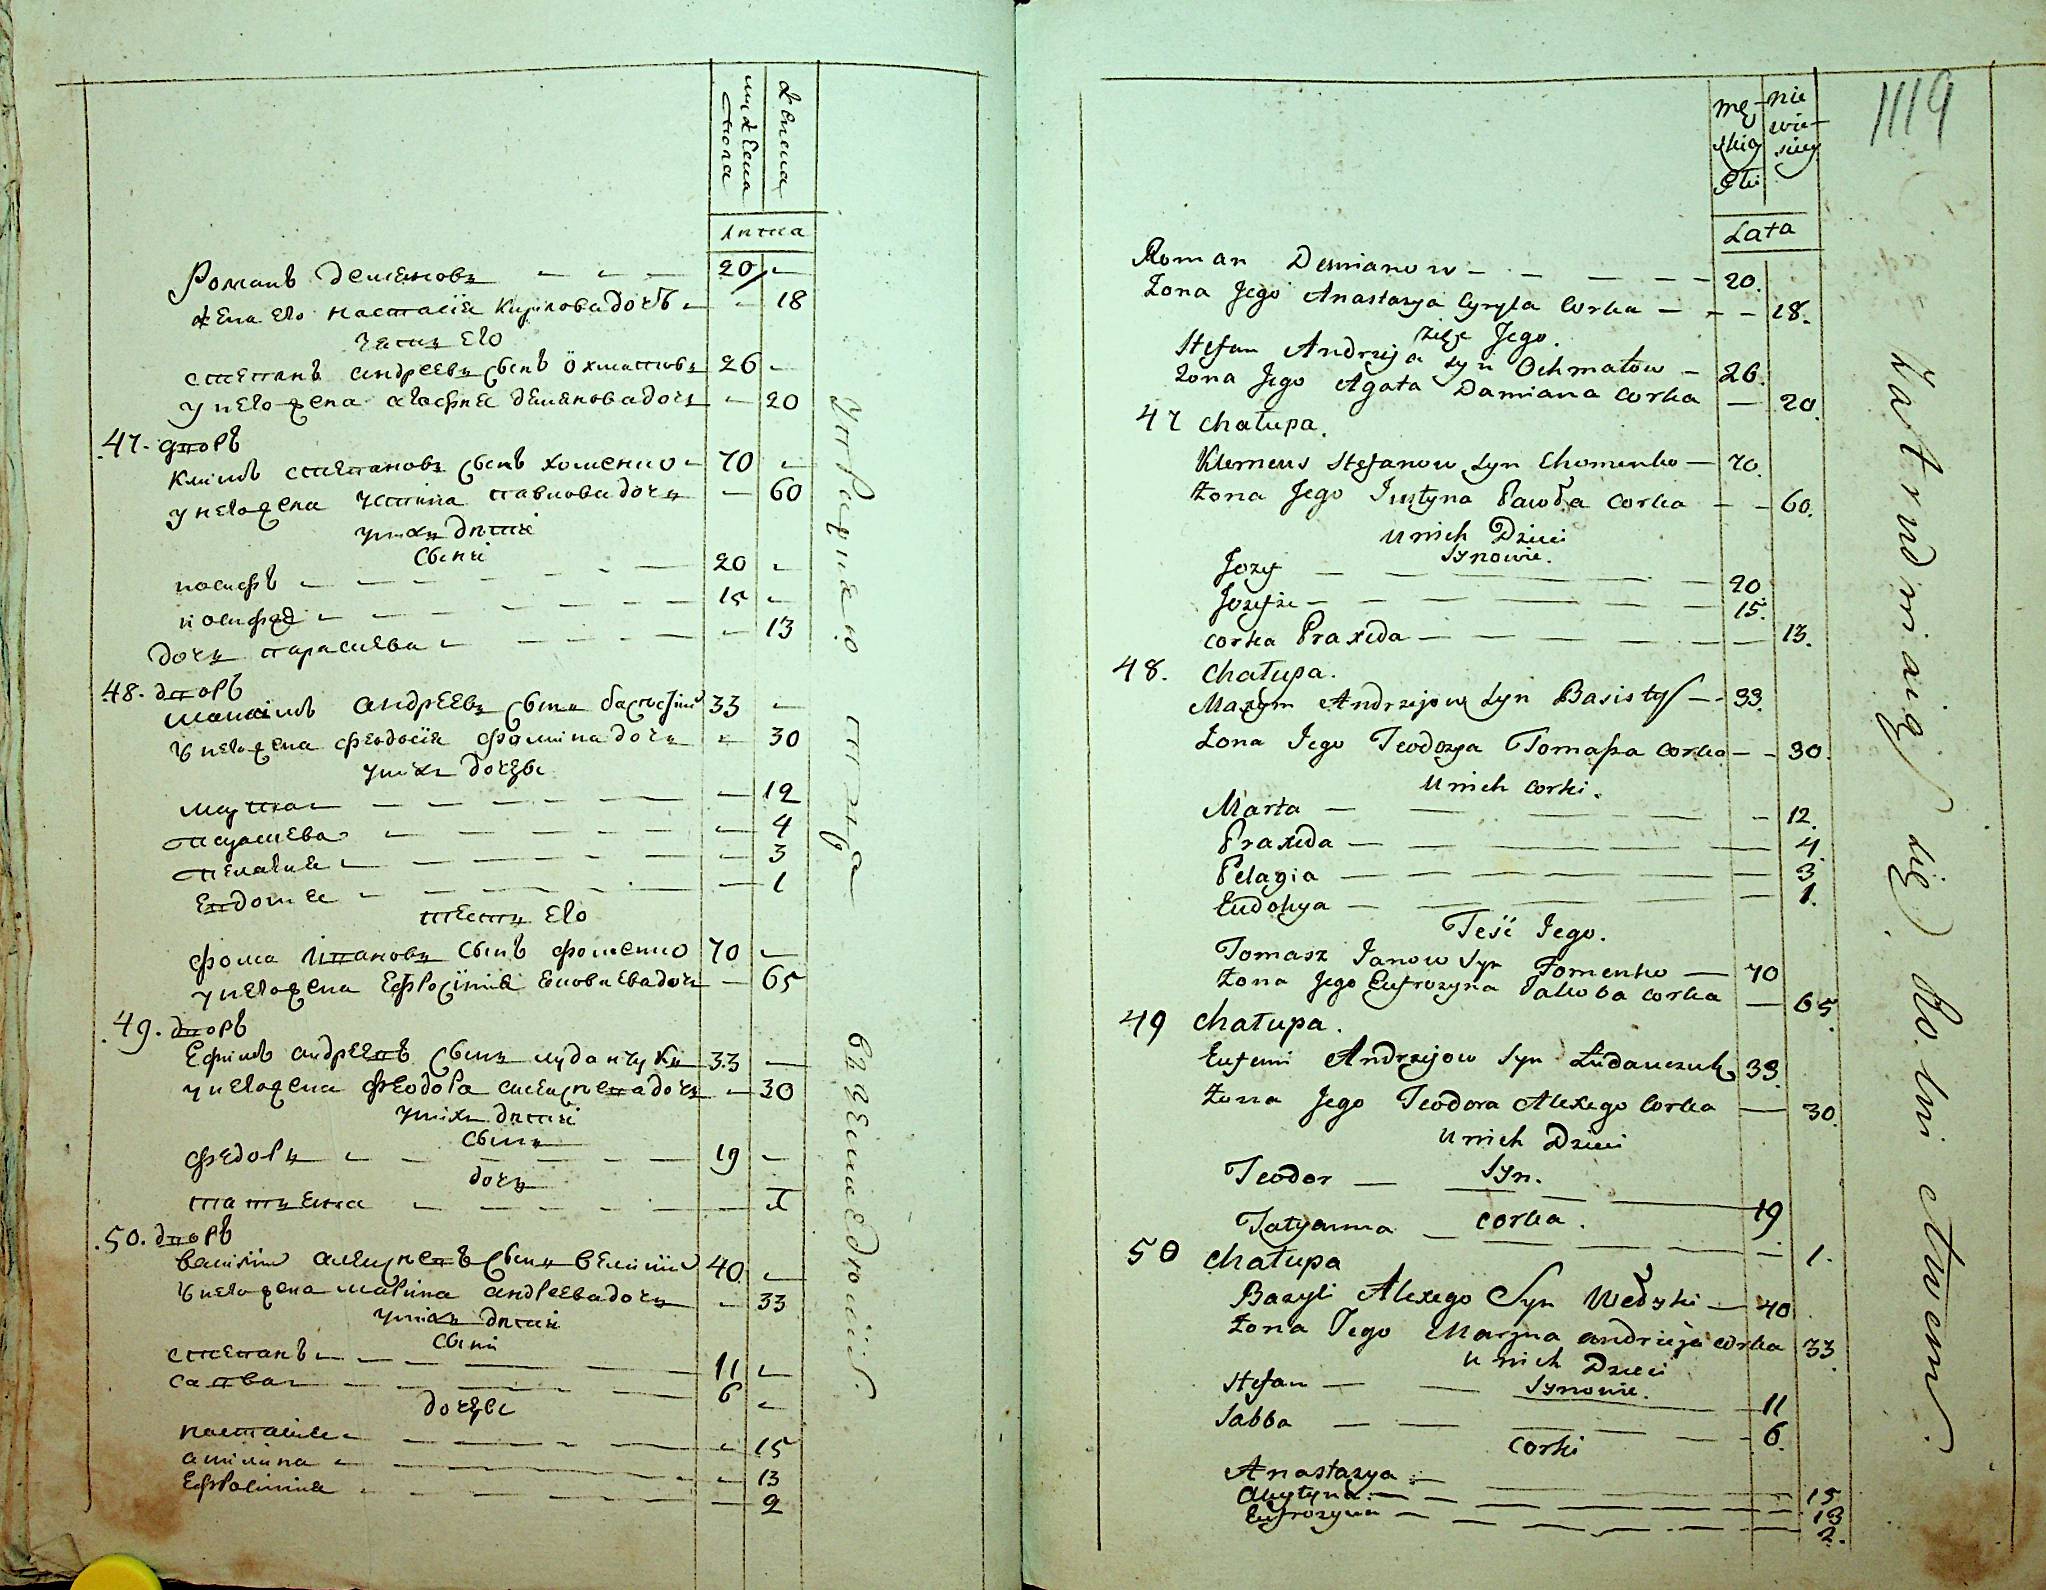 мужеска
пола
женска
лѣта
Романъ Деменовъ - - - 20 -
жена его Настасія Кирилова дочь - - 18
зять его
Степанъ Андреевъ сынъ Охматовъ 26 -
у него жена Агафия Деменова дочь - 20
47. дворъ
Климъ Степановъ сынъ Хоменко - 70 -
у него жена Устина Павлова дочь - 60
у нихъ дѣти
сыни
иосифъ - - - - - - 20 -
иосифже - - - - - - 15 -
дочь парасиева - - - - - - 13
48. дворъ
Максімъ Андреевъ сынъ 33 -
у него жена Феодосія Фомина дочь - 30
у нихъ дочери
Марта - - - - - - 12
Парасиева - - - - - - 4
Пелагия - - - - - - 3
Евдокия - - - - - - 1
тесть его
Фома Івановъ сынъ Фоменко 70 -
у него жена Ефросінія Яковлева дочь - 65
49. дворъ
Ефимъ Андреевъ сынъ 33 -
у него жена Феодора Алексѣева дочь - 30
у нихъ дѣти
сынъ
Федоръ - - - - - - 19 -
дочь
татіяна - - - - - - 1
50. дворъ
Василій Алексѣевъ сынъ 40 -
у него жена Марина Андреева дочь - 33
у нихъ дѣти
сыни
Степанъ - - - - 11 -
Савва - - - - 6 -
дочери
Настасия - - - - - 15
Акилина - - - - - 13
Ефросиния - - - - - 2
mę-
skiey
Płci
nie
wie-
sciey
Lata
1119
Roman Demianow - - - - 20.
Żona Jego Anastazya Cyryla Corka - - - 18.
Zięć Jego.
Stefan Andrzeja Syn Ochmatow - 26.
Żona Jego Agata Damiana Corka - 20.
47 Chałupa.
Klemens Stefanow Syn Chomenko - 70.
Żona Jego Justyna Pawła Corka - - 60.
U nich Dzieci
Synowie.
Jozef - - - - - 20.
Jozefże - - - - - 15.
Corka Praxeda - - - - - 13.
48. Chałupa.
Maxym Andrzejow Syn Basisty - - 33.
Żona Jego Teodozya Tomasza Corka - - 30.
U nich Corki.
Marta - - - - - 12.
Praxeda - - - - - 4.
Pelagia - - - - - 3
Eudokya - - - - - 1.
Teść Jego.
Tomasz Janow Syn Fomenko - 70
Żona Jego Eufrozyna Jakoba Corka - 65.
49 Chałupa.
Eufemi Andrzejow Syn Łudanczuk 33.
Żona Jego Teodora Alexego Corka - 30.
U nich Dzieci
Syn.
Teodor - - - - 19
Corka.
Tatyanna - - - - 1.
50 Chałupa
Bazyli Alexego Syn - 40
Żona Jego Maryna Andrzeja Corka 33.
U nich Dzieci
Synowie.
Stefan - - - - 11
Sabba - - - - 6.
Corki
Anastazya - - - - 15
Akylyna - - - - 13
Eufrozyna - - - - 2.